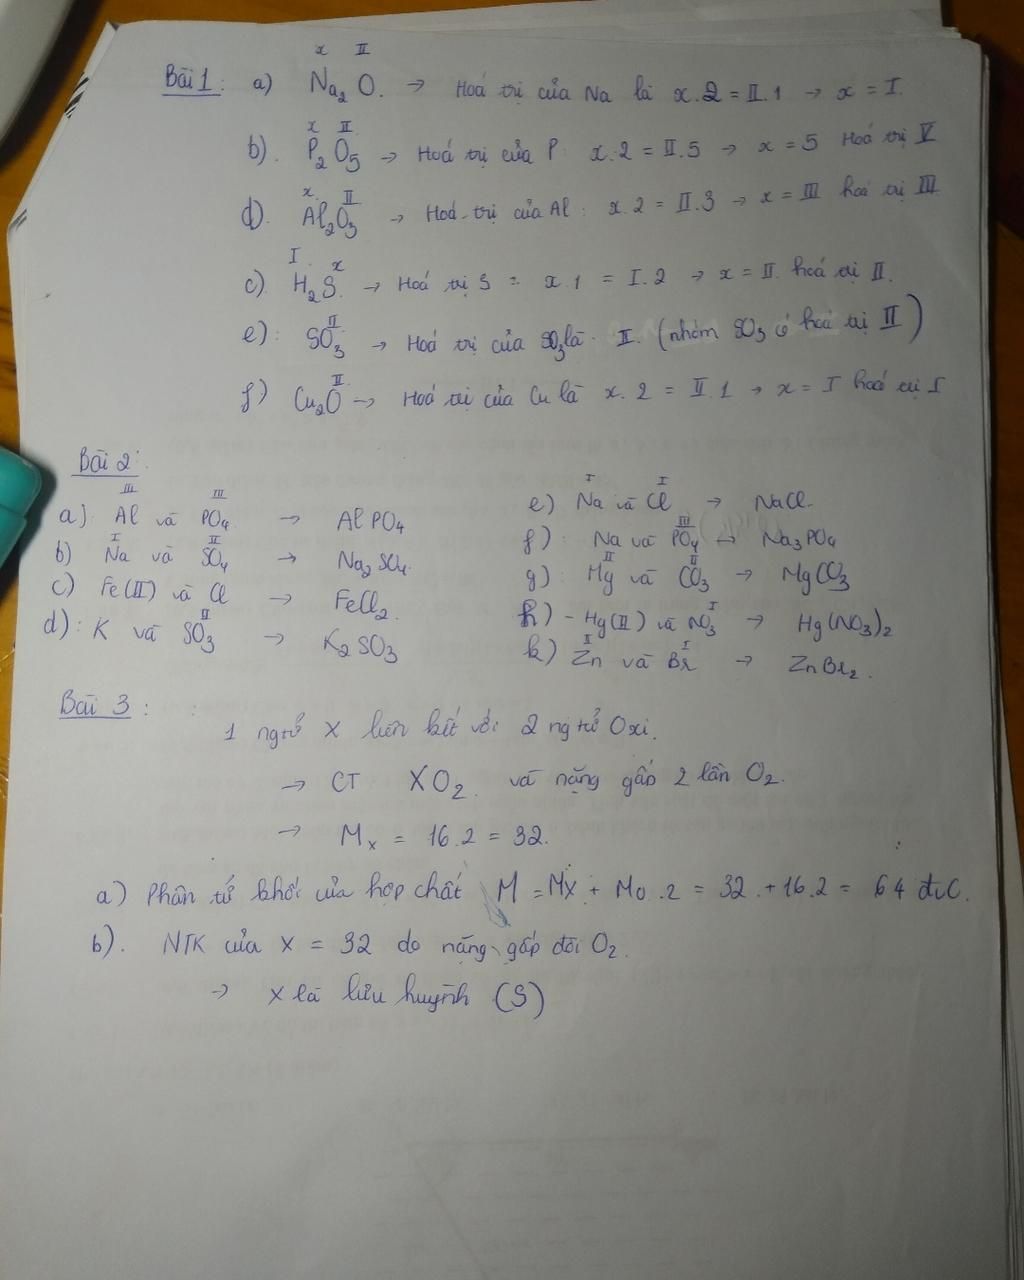 x II
Bài 1: a) Na2 O. → Hoá trị của Na là x.2 = II.1 → x = I.
x II
b). P2 O5 → Hoá trị của P: x.2 = II.5 → x = 5 Hoá trị V
x. II
d). Al2O3 → Hoá trị của Al: x.2 = II.3 → x = III hoá trị III
I. x
c). H2S. → Hoá trị S = x.1 = I.2 → x = II. hoá trị II.
II
e): SO3 → Hoá trị của SO3 là II. (nhóm SO3 có hoá trị II)
II
f) Cu2O → Hoá trị của Cu là x.2 = II.1 → x = I hoá trị I
Bài 2:
III III
a). Al và PO4 → AlPO4
I II
b) Na và SO4 → Na2SO4.
c) Fe(II) và Cl → FeCl2.
II
d): K và SO3 → K2SO3
I I
e) Na và Cl → NaCl.
III
f): Na và PO4 → Na3PO4
II II
g): Mg và CO3 → MgCO3
I
h) - Hg(II) và NO3 → Hg(NO3)2
II I
k) Zn và Br → ZnBr2.
Bài 3:
1 ngtử X liên kết với 2 ngtử Oxi.
→ CT XO2. và nặng gấp 2 lần O2.
→ Mx = 16.2 = 32.
a) Phân tử khối của hợp chất M = MX + MO.2 = 32.+16.2 = 64 đvC.
b). NTK của X = 32 do nặng gấp đôi O2.
→ X là lưu huỳnh (S)